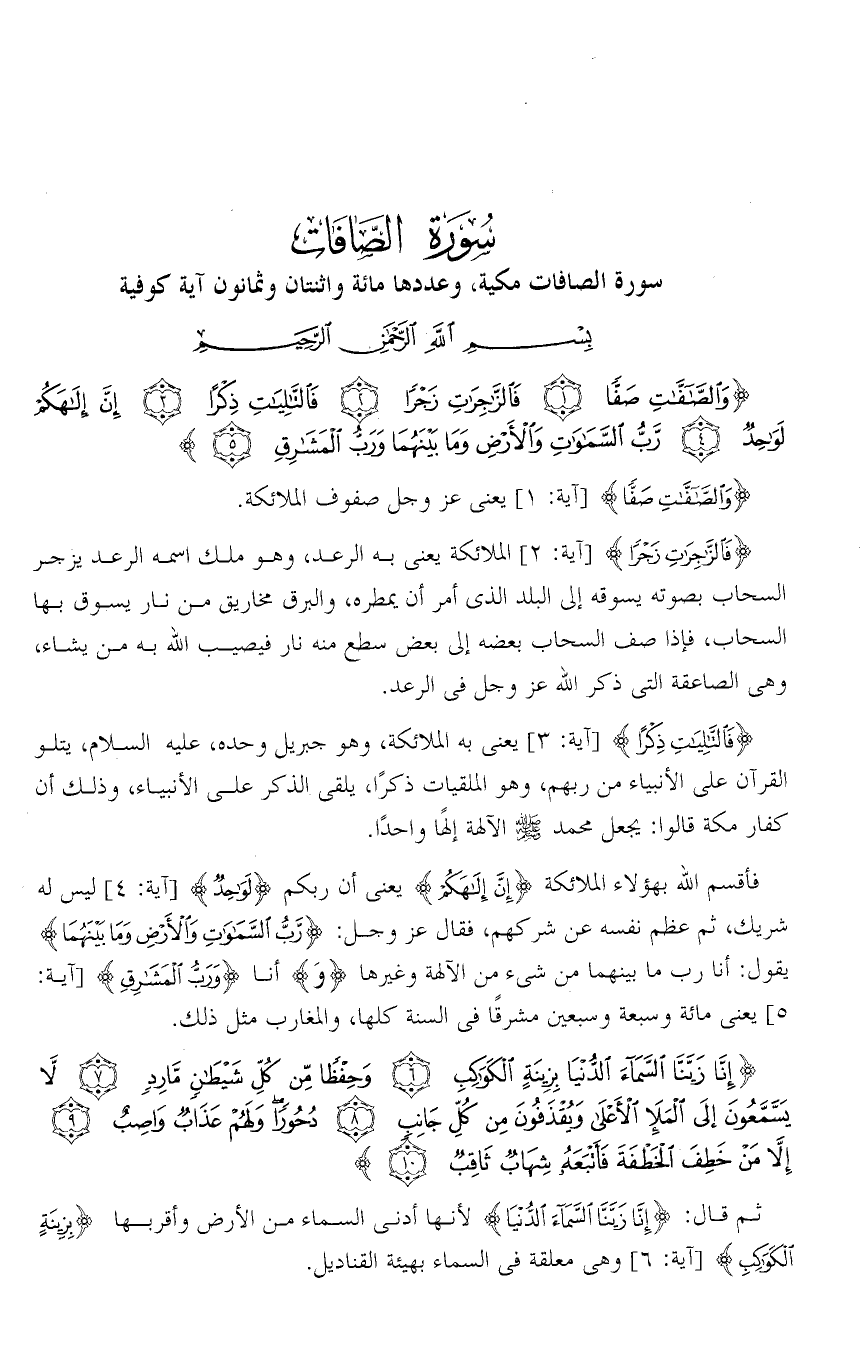 سُورَةُ الصَّافَاتِ
سورة الصافات مكية، وعددها مائة واثنتان وثمانون آية كوفية
بِسْمِ ٱللَّهِ ٱلرَّحْمَٰنِ ٱلرَّحِيمِ
﴿وَٱلصَّٰٓفَّٰتِ صَفًّا ۝١ فَٱلزَّٰجِرَٰتِ زَجْرًا ۝٢ فَٱلتَّٰلِيَٰتِ ذِكْرًا ۝٣ إِنَّ إِلَٰهَكُمْ
لَوَٰحِدٌ ۝٤ رَّبُّ ٱلسَّمَٰوَٰتِ وَٱلْأَرْضِ وَمَا بَيْنَهُمَا وَرَبُّ ٱلْمَشَٰرِقِ ۝٥﴾
﴿وَٱلصَّٰٓفَّٰتِ صَفًّا﴾ [آية: ١] يعنى عز وجل صفوف الملائكة.
﴿فَٱلزَّٰجِرَٰتِ زَجْرًا﴾ [آية: ٢] الملائكة يعنى به الرعد، وهو ملك اسمه الرعد يزجر
السحاب بصوته يسوقه إلى البلد الذى أمر أن يمطره، والبرق مخاريق من نار يسوق بها
السحاب، فإذا صف السحاب بعضه إلى بعض سطع منه نار فيصيب الله به من يشاء،
وهى الصاعقة التى ذكر الله عز وجل فى الرعد.
﴿فَٱلتَّٰلِيَٰتِ ذِكْرًا﴾ [آية: ٣] يعنى به الملائكة، وهو جبريل وحده، عليه السلام، يتلو
القرآن على الأنبياء من ربهم، وهو الملقيات ذكرًا، يلقى الذكر على الأنبياء، وذلك أن
كفار مكة قالوا: يجعل محمد ﷺ الآلهة إلهًا واحدًا.
فأقسم الله بهؤلاء الملائكة ﴿إِنَّ إِلَٰهَكُمْ﴾ يعنى أن ربكم ﴿لَوَٰحِدٌ﴾ [آية: ٤] ليس له
شريك، ثم عظم نفسه عن شركهم، فقال عز وجل: ﴿رَّبُّ ٱلسَّمَٰوَٰتِ وَٱلْأَرْضِ وَمَا بَيْنَهُمَا﴾
يقول: أنا رب ما بينهما من شىء من الآلهة وغيرها ﴿وَ﴾ أنا ﴿وَرَبُّ ٱلْمَشَٰرِقِ﴾ [آية:
٥] يعنى مائة وسبعة وسبعين مشرقًا فى السنة كلها، والمغارب مثل ذلك.
﴿إِنَّا زَيَّنَّا ٱلسَّمَآءَ ٱلدُّنْيَا بِزِينَةٍ ٱلْكَوَاكِبِ ۝٦ وَحِفْظًا مِّن كُلِّ شَيْطَٰنٍ مَّارِدٍ ۝٧ لَّا
يَسَّمَّعُونَ إِلَى ٱلْمَلَإِ ٱلْأَعْلَىٰ وَيُقْذَفُونَ مِن كُلِّ جَانِبٍ ۝٨ دُحُورًا ۖ وَلَهُمْ عَذَابٌ وَاصِبٌ ۝٩
إِلَّا مَنْ خَطِفَ ٱلْخَطْفَةَ فَأَتْبَعَهُۥ شِهَابٌ ثَاقِبٌ ۝١٠﴾
ثم قال: ﴿إِنَّا زَيَّنَّا ٱلسَّمَآءَ ٱلدُّنْيَا﴾ لأنها أدنى السماء من الأرض وأقربها ﴿بِزِينَةٍ
ٱلْكَوَاكِبِ﴾ [آية: ٦] وهى معلقة فى السماء بهيئة القناديل.